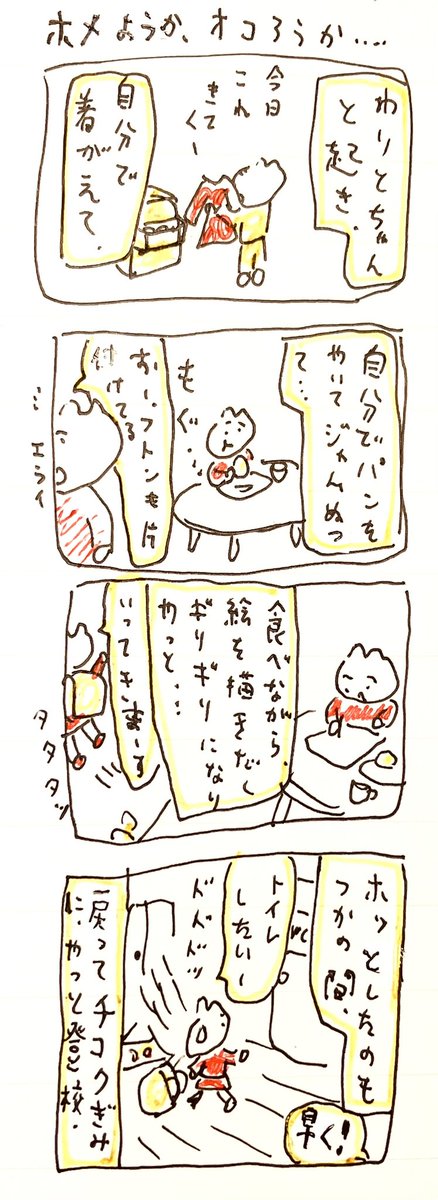 ホメようか、オコろうか.....
わりとちゃん
と起き、
今日
これ
きて
くー
自分で
着がえて、
自分でパンを
やいてジャムぬっ
て…
もぐ…
おーフトンも片
付けてる
…エライ
食べながら、
絵を描きだし
ギリギリになり
やっと…
いってきまーす
タタタッ
ホッとしたのも
つかの間、
WC
トイレ
したいー
ドドドッ
早く!
戻ってチコクぎみ
に、やっと登校.